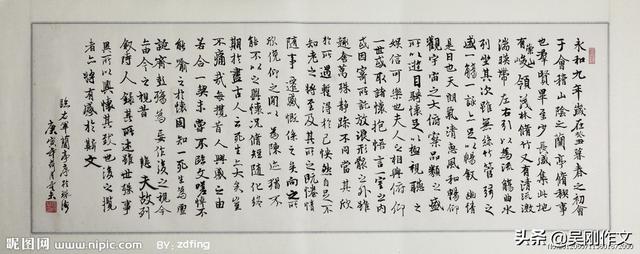 永和九年歲在癸丑暮春之初會
于會稽山陰之蘭亭脩稧事
也羣賢畢至少長咸集此地
有崇山峻領茂林脩竹又有清流激
湍暎帶左右引以為流觴曲水
列坐其次雖無絲竹管弦之
盛一觴一詠亦足以暢敘幽情
是日也天朗氣清惠風和暢仰
觀宇宙之大俯察品類之盛
所以遊目騁懷足以極視聽之
娛信可樂也夫人之相與俯仰
一世或取諸懷抱悟言一室之內
或因寄所託放浪形骸之外雖
趣舍萬殊靜躁不同當其欣
於所遇輒得於己快然自足不
知老之將至及其所之既惓情
隨事遷感慨係之矣向之所
欣俛仰之間以為陳迹猶不
能不以之興懷況脩短隨化終
期於盡古人云死生亦大矣豈
不痛哉每攬昔人興感之由
若合一契未嘗不臨文嗟悼不
能喻之於懷固知一死生為虛
誕齊彭殤為妄作後之視今
亦由今之視昔悲夫故列
敘時人錄其所述雖世殊事
異所以興懷其致一也後之攬
者亦將有感於斯文
臨右軍蘭亭序於
庚寅年
昵图网
www.nipic.com
BY: zdfing
头条
@吴刚作文